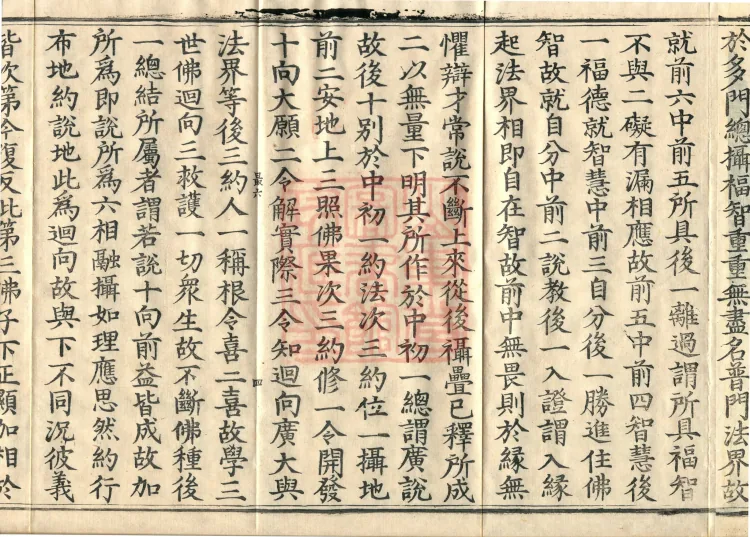 於多門總攝福智重重無盡名普門法界故
就前六中前五所具後一離過謂所具福智
不與二礙有漏相應故前五中前四智慧後
一福德就智慧中前三自分後一勝進住佛
智故就自分中前二說教後一入證謂入緣
起法界相即自在智故前中無畏則於緣無
懼辯才常說不斷上來從後攝疊已釋所成
二以無量下明其所作於中初一總謂廣說
故後十別於中初一約法次三約位一攝地
前二安地上三照佛果次三約修一令開發
十向大願二令解實際三令知迴向廣大與
最六
四
法界等後三約人一稱根令喜二喜故學三
世佛迴向三救護一切眾生故不斷佛種後
一總結所屬者謂若說十向前益皆成故加
所為即說所為六相融攝如理應思然約行
布地約說地此為迴向故與下不同況彼義
皆次第今復反此第三佛子下正顯加相於